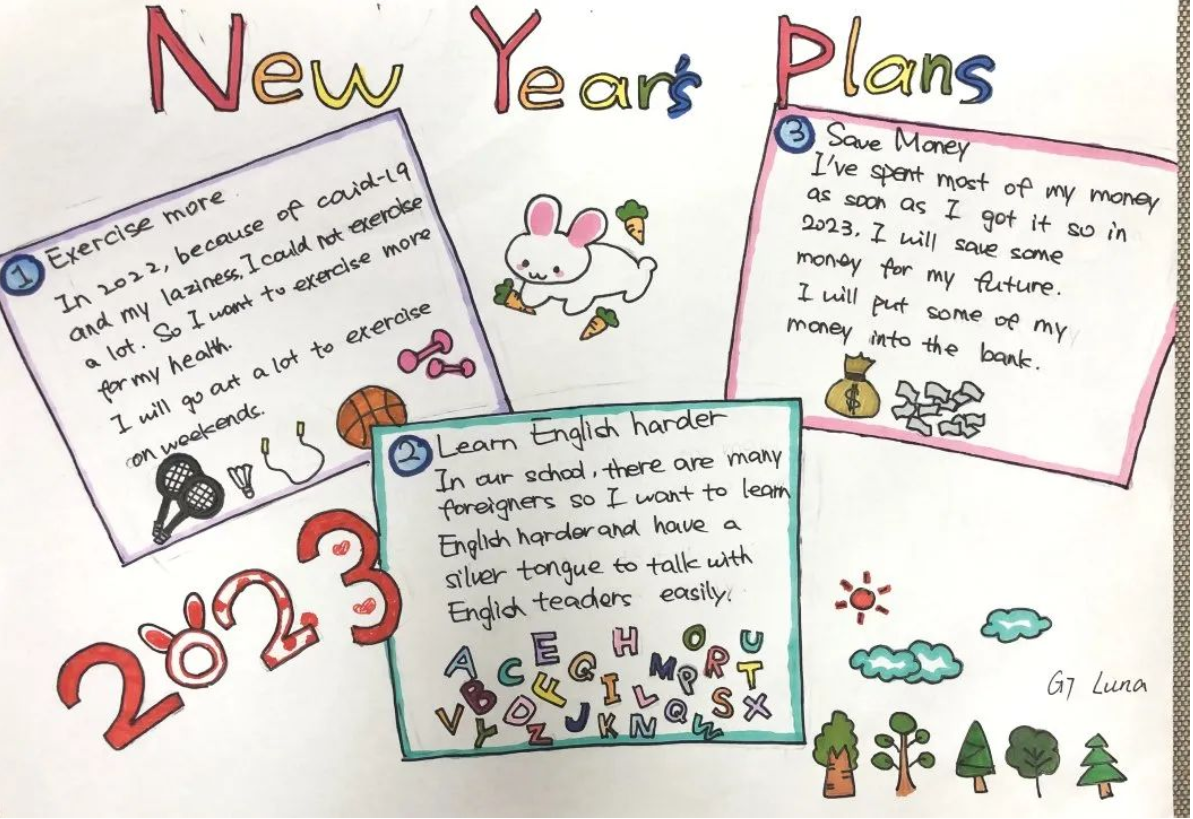 New Year's Plans
1 Exercise more
In 2022, because of covid-19
and my laziness, I could not exercise
a lot. So I want to exercise more
for my health.
I will go out a lot to exercise
on weekends.
3 Save Money
I've spent most of my money
as soon as I got it so in
2023. I will save some
money for my future.
I will put some of my
money into the bank.
$
2 Learn English harder
In our school, there are many
foreigners so I want to learn
English harder and have a
silver tongue to talk with
English teachers easily.
A C E G H M O R U
B F I L P T
V Y D Z J K N Q W S X
2023
G7 Luna